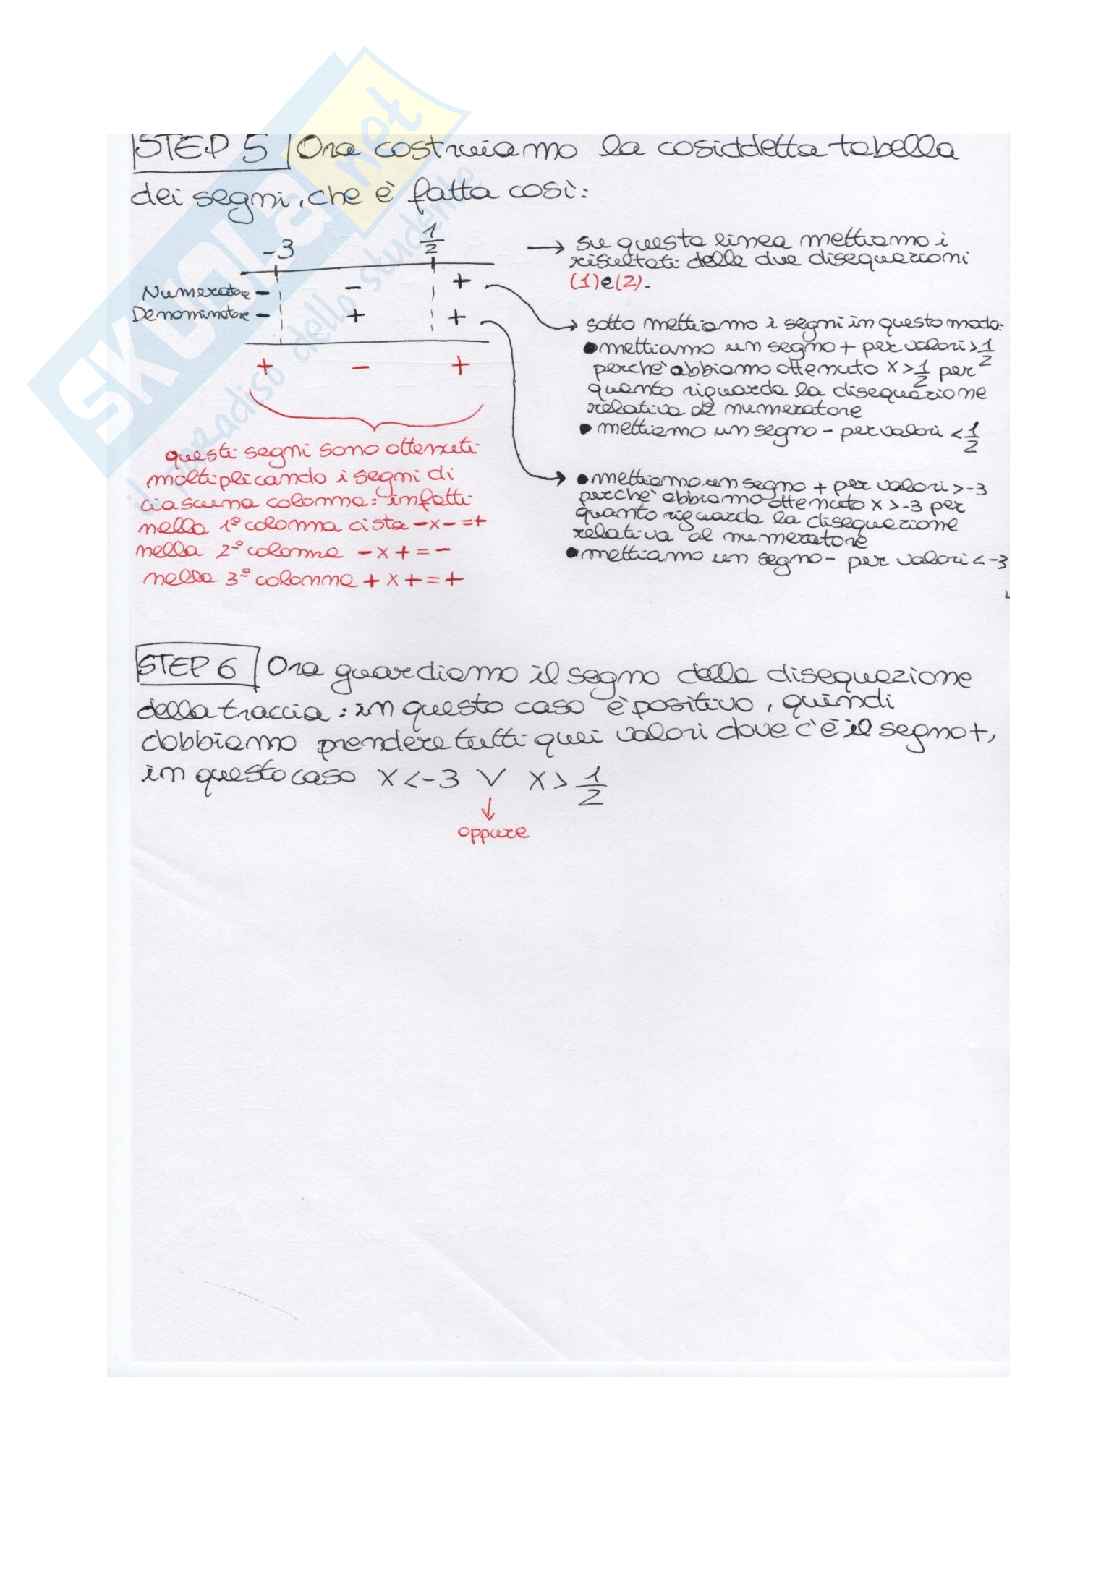 STEP 5 Ora costruiamo la cosiddetta tabella
dei segni, che è fatta così:
-3 1/2
Numeratore - - +
Denominatore - + +
+ - +
→ su questa linea mettiamo i
risultati delle due disequazioni
(1) e (2).
→ sotto mettiamo i segni in questo modo:
● mettiamo un segno + per valori > 1/2
perchè abbiamo ottenuto x > 1/2 per
quanto riguarda la disequazione
relativa al numeratore
● mettiamo un segno - per valori < 1/2
● mettiamo un segno + per valori > -3
perchè abbiamo ottenuto x > -3 per
quanto riguarda la disequazione
relativa al numeratore
● mettiamo un segno - per valori < -3
questi segni sono ottenuti
moltiplicando i segni di
ciascuna colonna: infatti
nella 1° colonna ci sta - x - = +
nella 2° colonna - x + = -
nella 3° colonna + x + = +
STEP 6 Ora guardiamo il segno della disequazione
della traccia: in questo caso è positivo, quindi
dobbiamo prendere tutti quei valori dove c'è il segno +,
in questo caso x < -3 ∨ x > 1/2
↓
oppure
SKUOLA.net
il paradiso dello studente